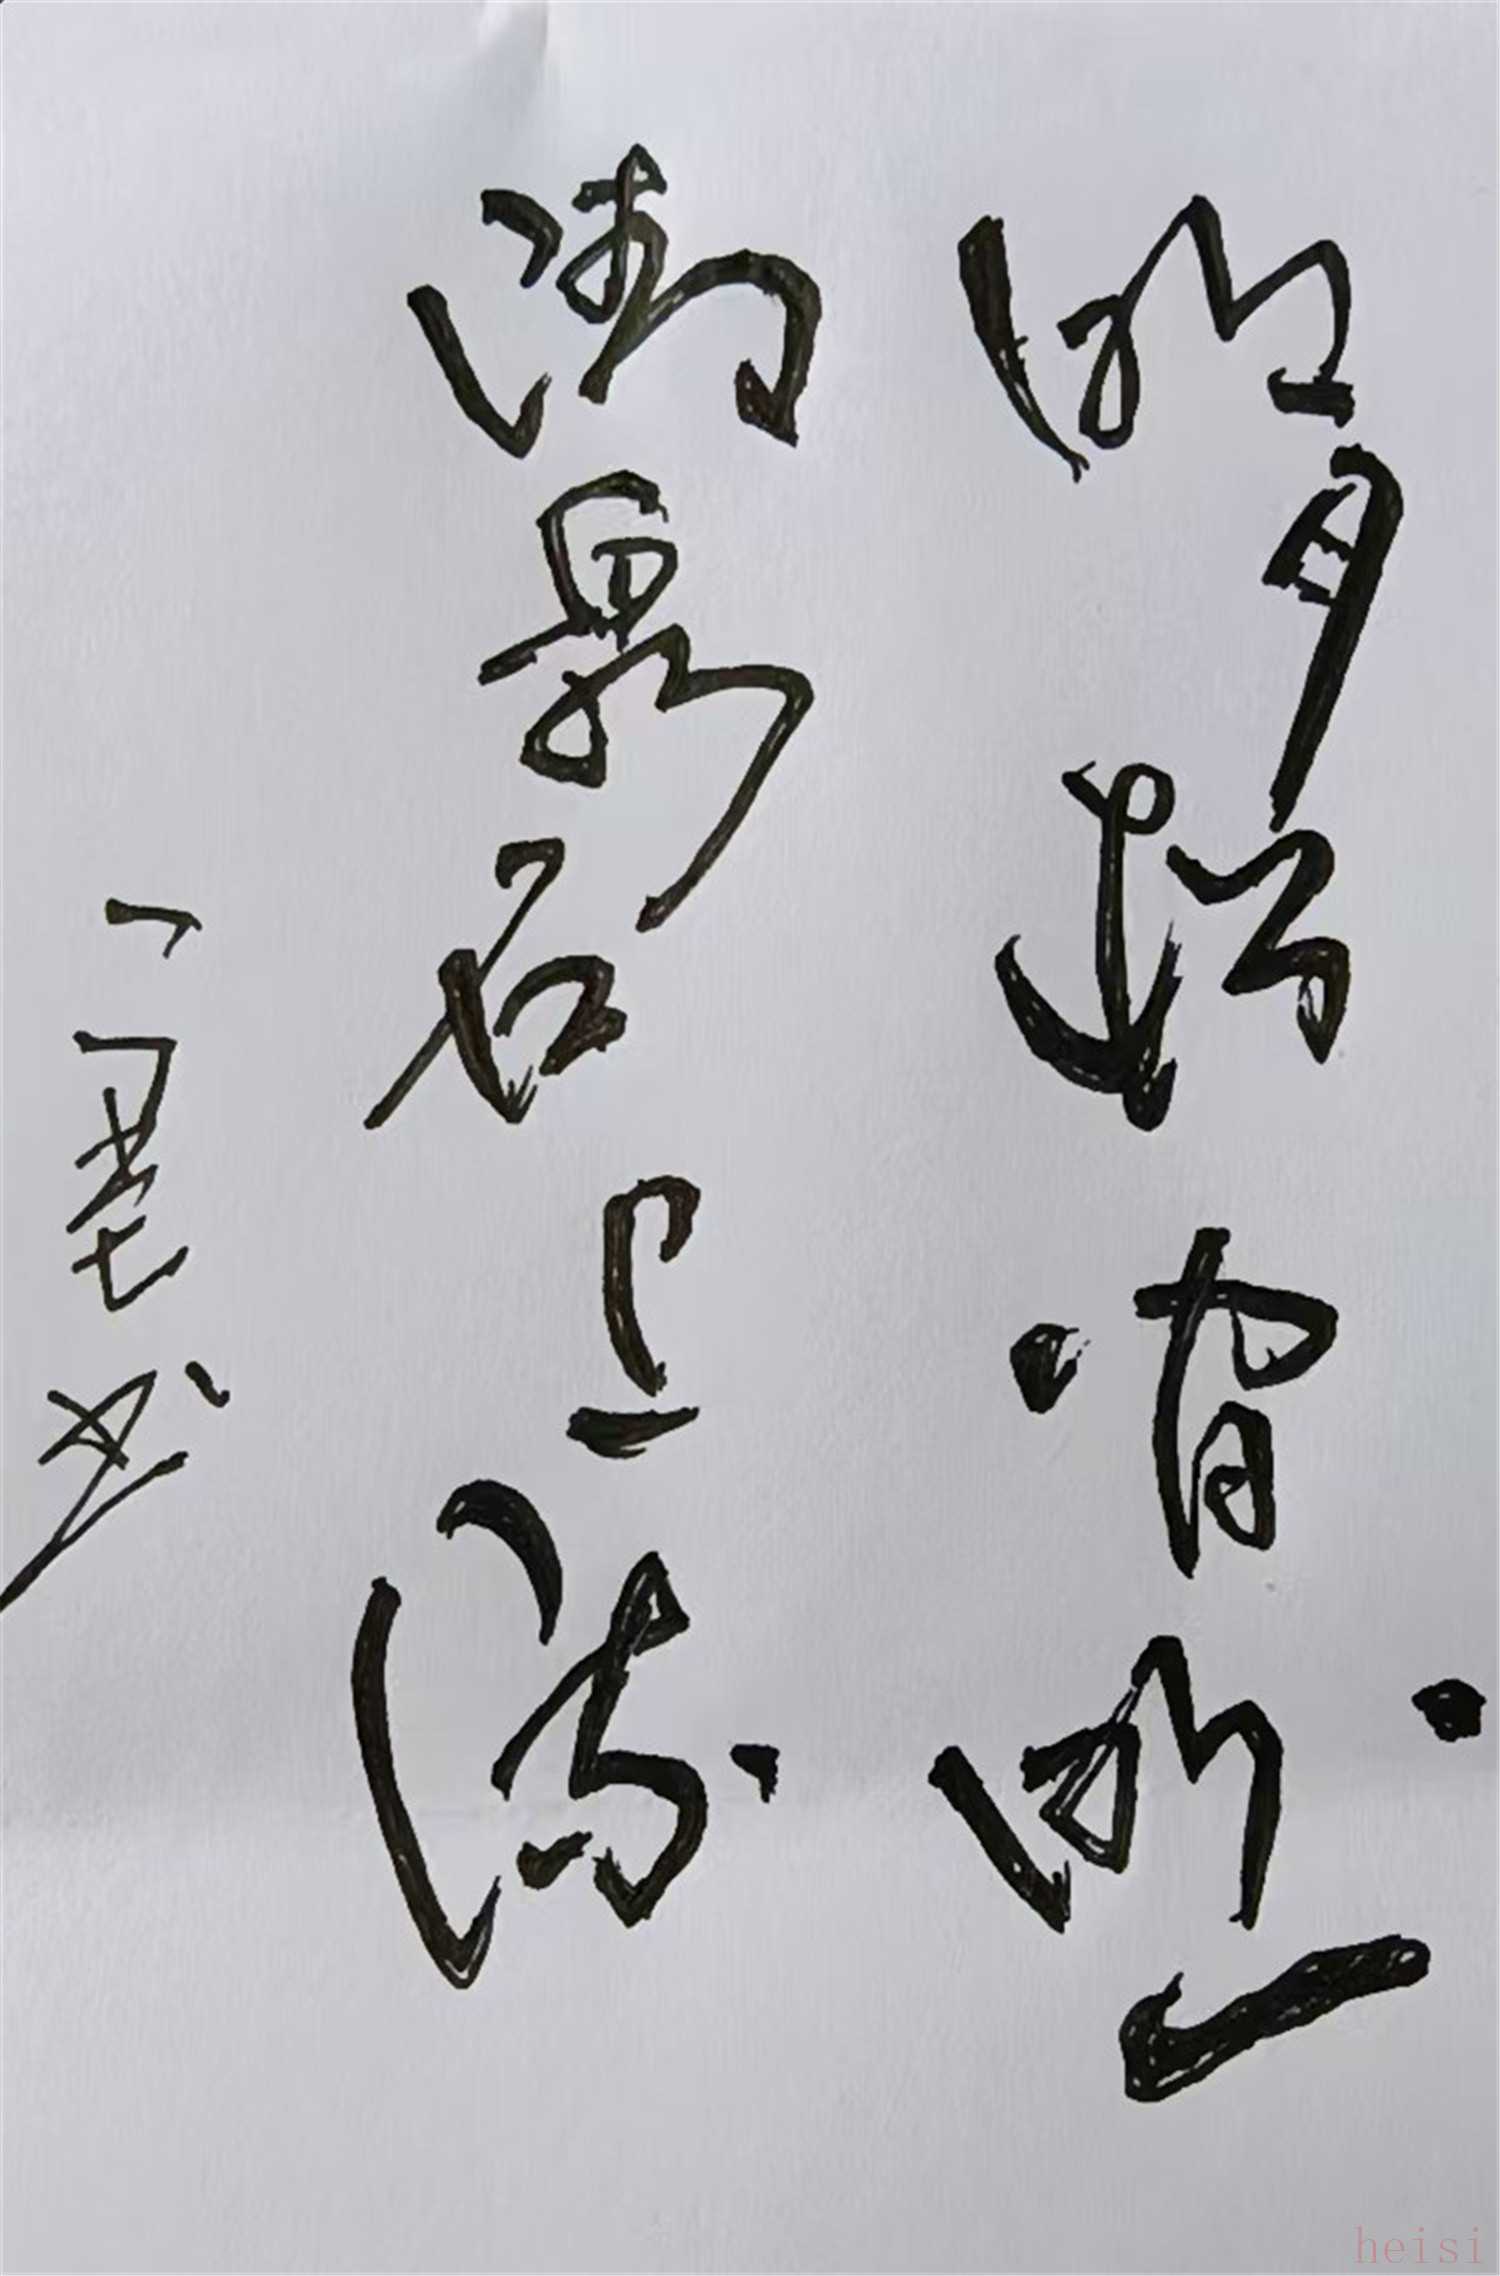 明月松间照
清泉石上流
书
heisi